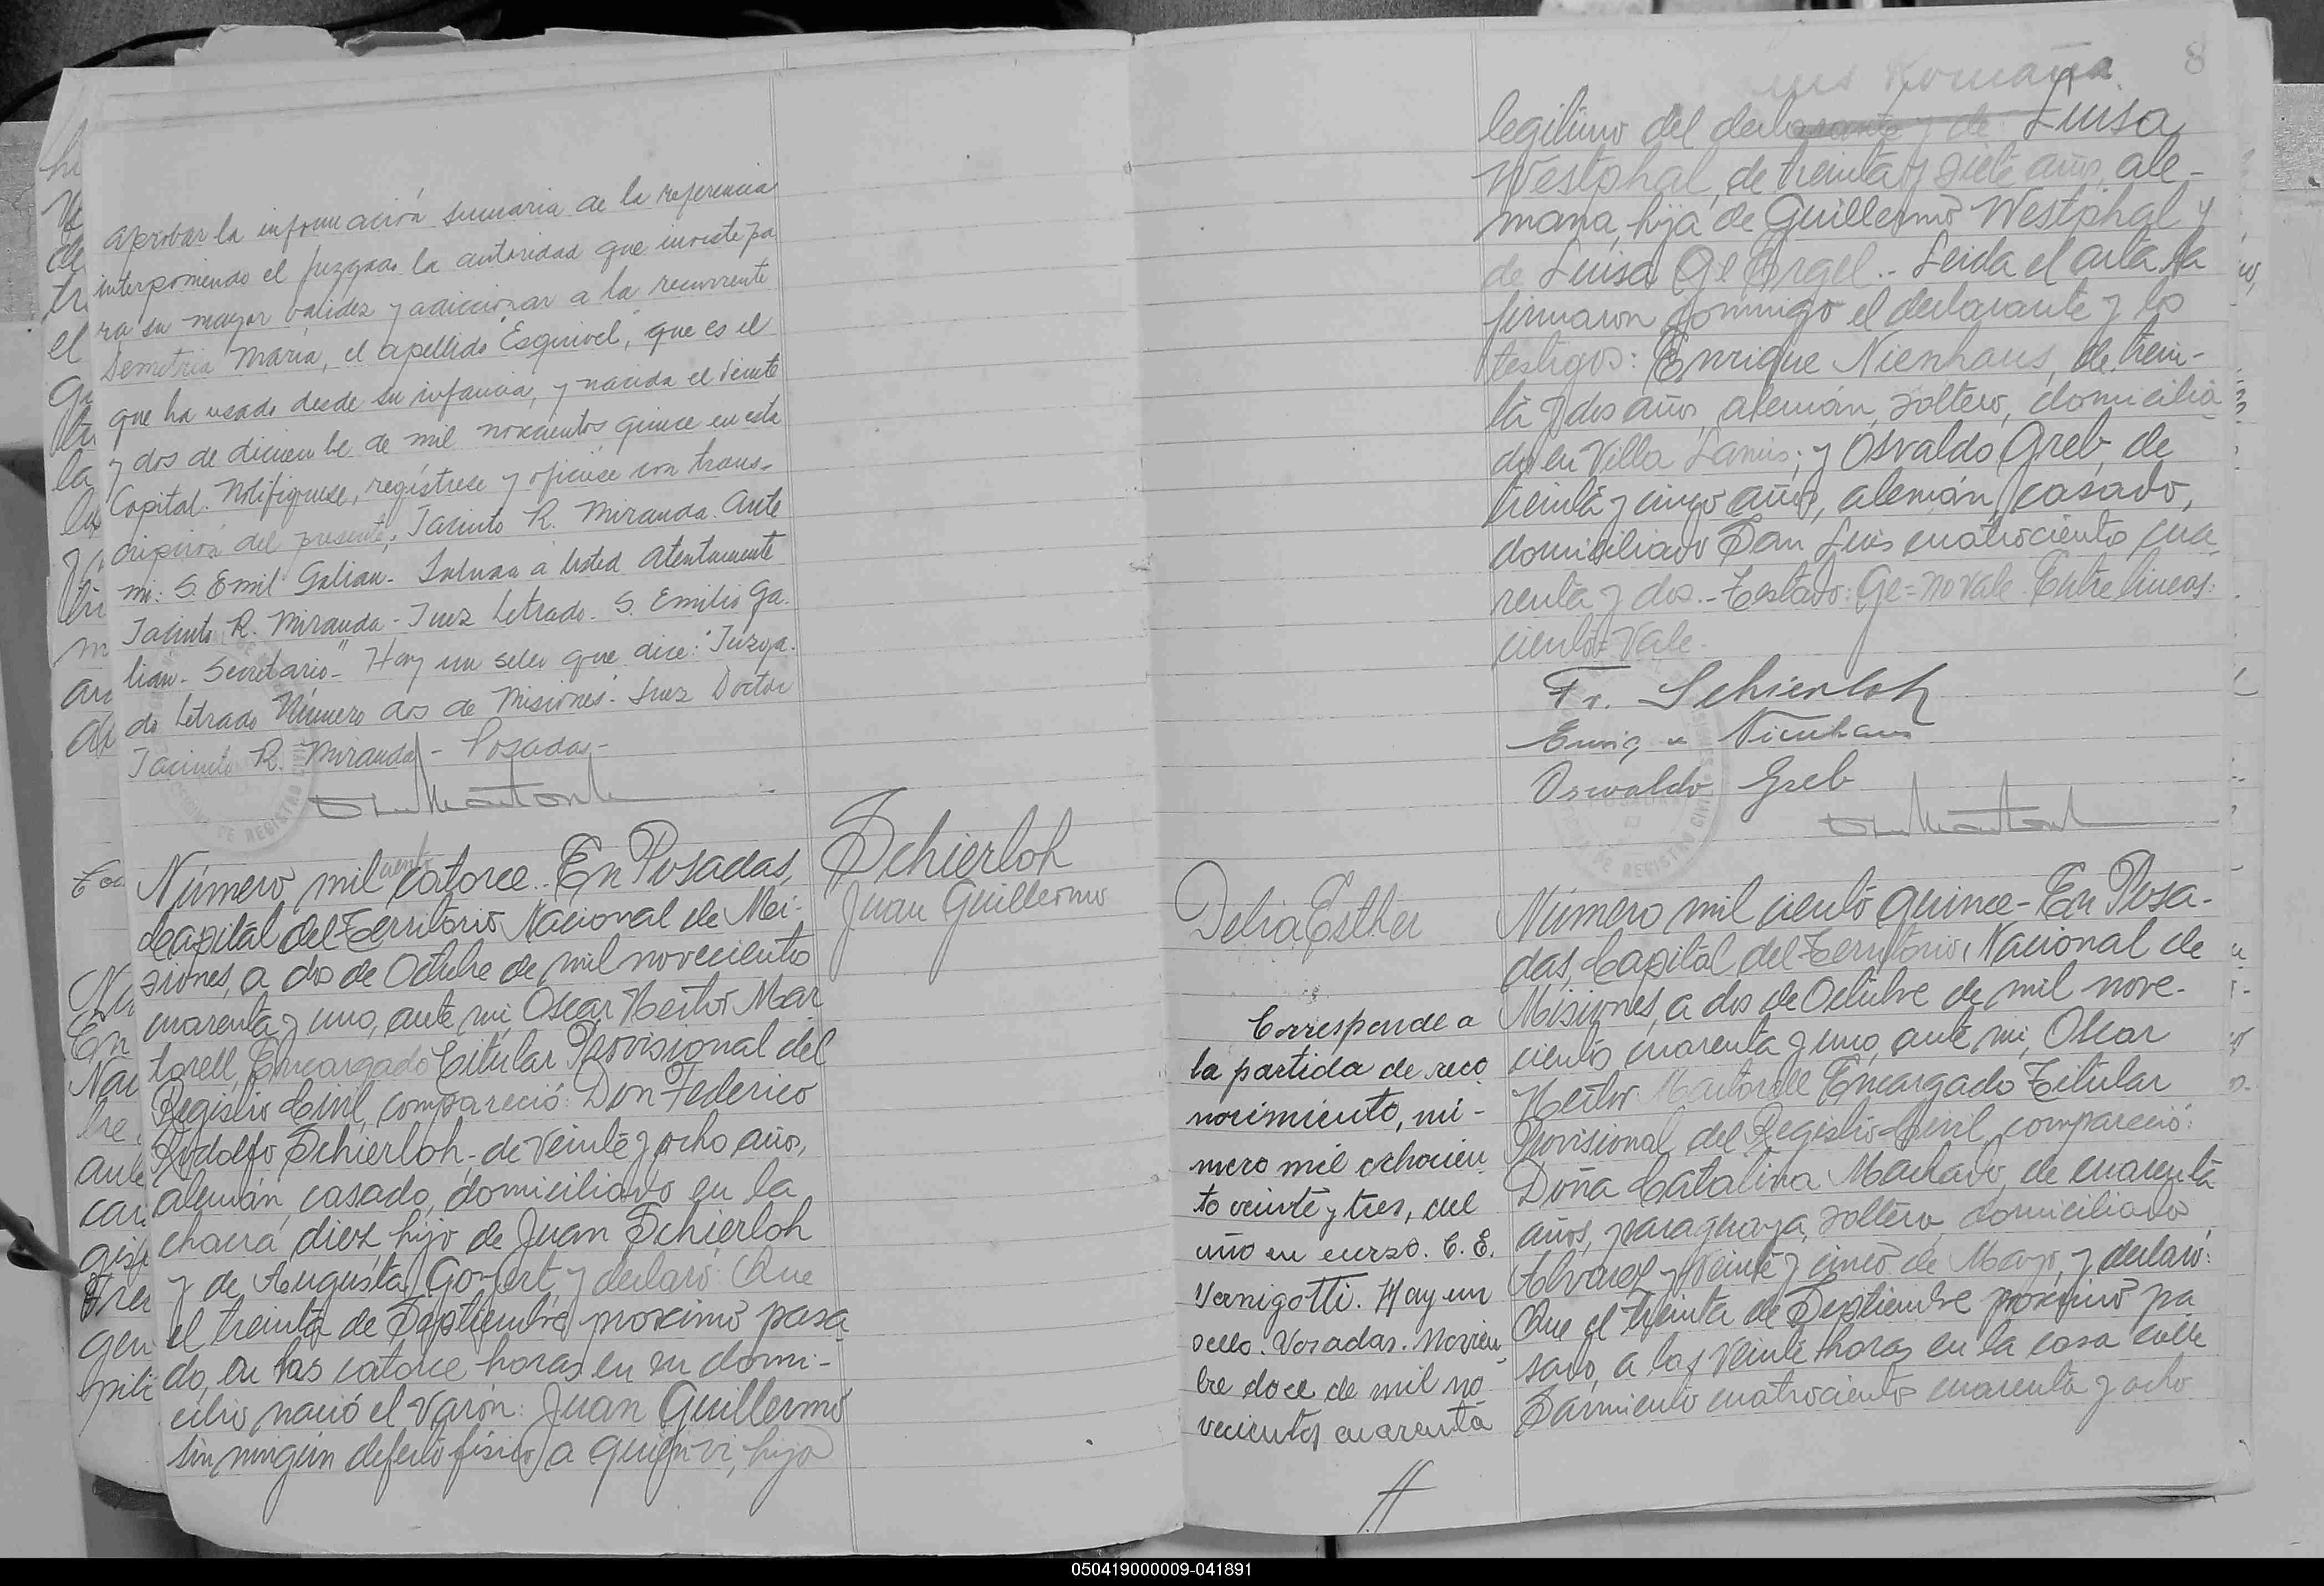 aprobar la información sumaria de la referencia
interponiendo el juzgado la autoridad que inviste pa
ra su mayor validez y adicionar a la recurrente
Demetria María, el apellido "Esquivel", que es el
que ha usado desde su infancia, y nacida el veinte
y dos de diciembre de mil novecientos quince en esta
Capital. Notifiquese, regístrese y ofíciese con trans-
cripción del presente. Jacinto R. Miranda. Ante
mi: S. Emil Galian. Saluda a usted atentamente
Jacinto R. Miranda - Juez Letrado. S. Emilio Ga.
lian. Secretario." Hay un sello que dice: "Juzga.
do Letrado Número dos de Misiones. Juez Doctor
Jacinto R. Miranda - Posadas -
Número mil ciento catorce. En Posadas,
Capital del Territorio Nacional de Mi-
siones, a dos de Octubre de mil novecientos
cuarenta y uno, ante mi, Oscar Hector Mar
torell, Encargado Titular Provisional del
Registro Civil, compareció: Don Federico
Rodolfo Schierloh, de veinte y ocho años,
alemán, casado, domiciliado en la
chacra diez, hijo de Juan Schierloh
y de Augusta Govert, y declaró: Que
el treinta de Septiembre proximo pasa
do, en las catorce horas en su domi-
cilio nació el varón: Juan Guillermo
sin ningún defecto físico, a quien vi, hijo
Schierloh
Juan Guillermo
8
legitimo del declarante y de Luisa
Westphal, de treinta y siete años, ale-
mana, hija de Guillermo Westphal y
de Luisa Ge Orgel.. Leida el acta la
firmaron conmigo el declarante y los
testigos: Enrique Nienhaus, de trein-
ta y dos años, alemán, soltero, domicilia
do en Villa Lanús; y Osvaldo Greb, de
treinta y cinco años, alemán, casado,
domiciliado San Luis cuatrociento cua
renta y dos.- Testado: Ge=no vale. Entre lineas:
ciento=Vale.
Fr. Schierloh
Nienhaus
Oswaldo Greb
Delia Esther
Corresponde a
la partida de reco
nocimiento, nú-
mero mil ochocien
to veinte y tres, del
año en curso. C. E.
Vernigotti. Hay un
sello. Posadas. Noviem
bre doce de mil no
vecientos cuarenta
Número mil ciento quince - En Posa-
das, Capital del Territorio Nacional de
Misiones, a dos de Octubre de mil nove-
ciento cuarenta y uno, ante mi, Oscar
Hector Martorell Encargado Titular
Provisional del Registro Civil, compareció:
Doña Catalina Machado, de cuarenta
años, paraguaya, soltera, domiciliado
Alvarez y Veinte y cinco de Mayo, y declaró:
Que el treinta de Septiembre proximo pa
sado, a las veinte horas en la casa calle
Sarmiento cuatrocientos cuarenta y ocho
050419000009-041891